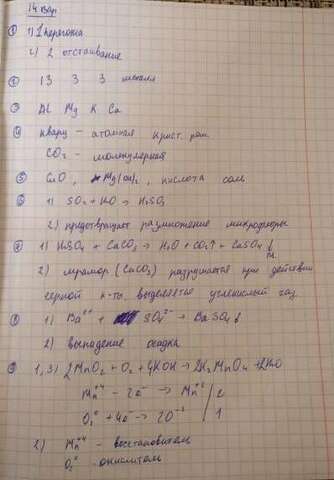 14 вар
① 1) 1 перегонка
2) 2 отстаивание
② 13 3 3 металл
③ Al Mg K Ca
④ кварц – атомная крист. реш.
CO₂ – молекулярная
⑤ CuO, Mg(OH)₂, кислота соль
⑥ 1) SO₂ + H₂O → H₂SO₃
2) предотвращает размножение микрофлоры
⑦ 1) H₂SO₄ + CaCO₃ → H₂O + CO₂↑ + CaSO₄↓
2) мрамор (CaCO₃) разрушается при действии
серной к-ты, выделяется углекислый газ.
⑧ 1) Ba²⁺ + SO₄²⁻ → BaSO₄↓
2) выпадение осадка
⑨ 1, 3) 2MnO₂ + O₂ + 4KOH → 2K₂MnO₄ + 2H₂O
Mn⁺⁴ – 2e⁻ → Mn⁺⁶ | 2
O₂⁰ + 4e⁻ → 2O⁻² | 1
2) Mn⁺⁴ – восстановитель
O₂⁰ – окислитель